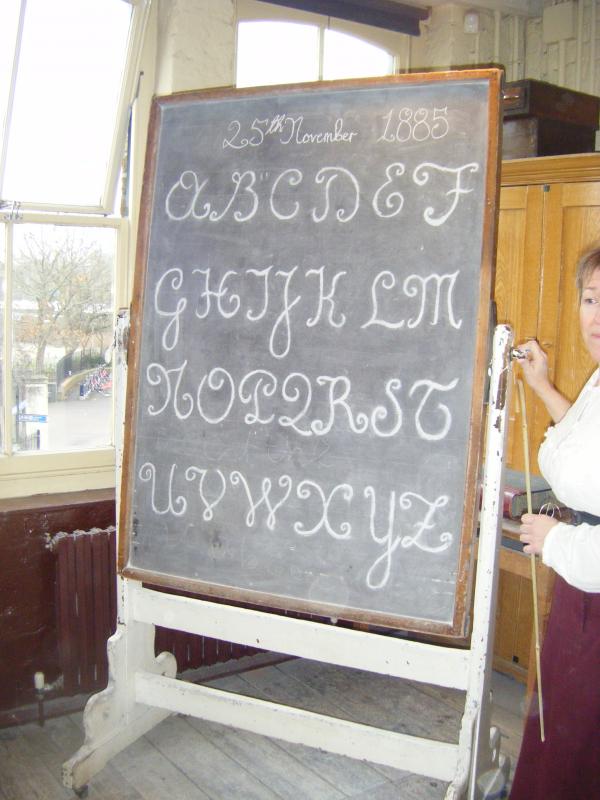 25th November 1885
A B C D E F
G H I J K L M
N O P Q R S T
U V W X Y Z